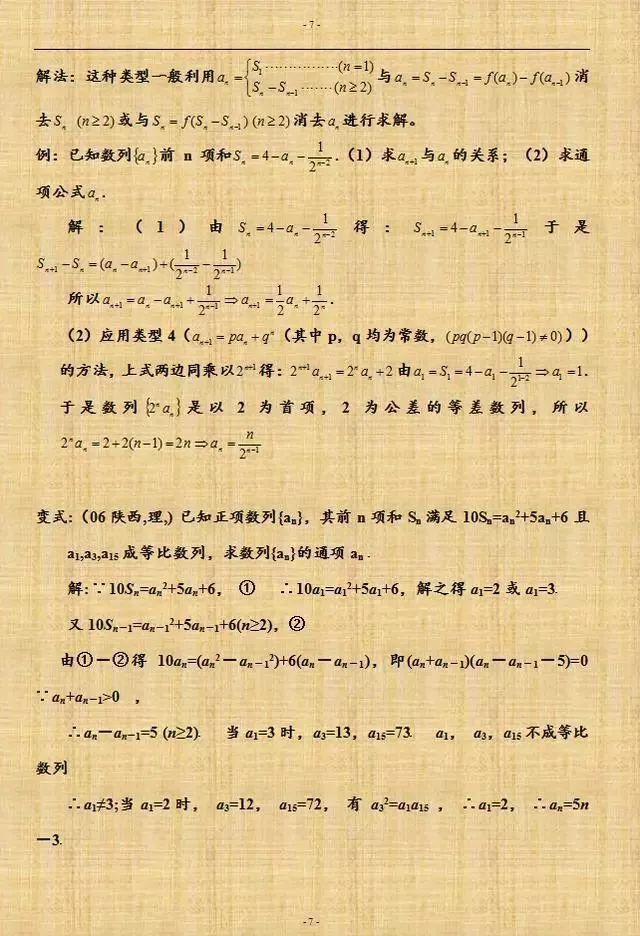 - 7 -
解法：这种类型一般利用$a_n=\begin{cases}S_1\cdots\cdots\cdots\cdots\cdots(n=1)\\S_n-S_{n-1}\cdots\cdots(n\geq2)\end{cases}$与$a_n=S_n-S_{n-1}=f(a_n)-f(a_{n-1})$消
去$S_n$ $(n\geq2)$或与$S_n=f(S_n-S_{n-1})$ $(n\geq2)$消去$a_n$进行求解。
例：已知数列$\{a_n\}$前 n 项和$S_n=4-a_n-\frac{1}{2^{n-2}}$.（1）求$a_{n+1}$与$a_n$的关系；（2）求通
项公式$a_n$.
解：（1）由$S_n=4-a_n-\frac{1}{2^{n-2}}$得：$S_{n+1}=4-a_{n+1}-\frac{1}{2^{n-1}}$于是
$S_{n+1}-S_n=(a_n-a_{n+1})+(\frac{1}{2^{n-2}}-\frac{1}{2^{n-1}})$
所以$a_{n+1}=a_n-a_{n+1}+\frac{1}{2^{n-1}}\Rightarrow a_{n+1}=\frac{1}{2}a_n+\frac{1}{2^n}$.
（2）应用类型 4（$a_{n+1}=pa_n+q^n$（其中 p，q 均为常数，$(pq(p-1)(q-1)\neq0)$））
的方法，上式两边同乘以$2^{n+1}$得：$2^{n+1}a_{n+1}=2^na_n+2$由$a_1=S_1=4-a_1-\frac{1}{2^{1-2}}\Rightarrow a_1=1$.
于是数列$\{2^na_n\}$是以 2 为首项，2 为公差的等差数列，所以
$2^na_n=2+2(n-1)=2n\Rightarrow a_n=\frac{n}{2^{n-1}}$
变式:（06 陕西,理,）已知正项数列{aₙ}，其前 n 项和 Sₙ 满足 10Sₙ=aₙ²+5aₙ+6 且
a₁,a₃,a₁₅ 成等比数列，求数列{aₙ}的通项 aₙ .
解: ∵10Sₙ=aₙ²+5aₙ+6， ① ∴10a₁=a₁²+5a₁+6，解之得 a₁=2 或 a₁=3.
又 10Sₙ₋₁=aₙ₋₁²+5aₙ₋₁+6(n≥2)，②
由①－②得 10aₙ=(aₙ²－aₙ₋₁²)+6(aₙ－aₙ₋₁)，即(aₙ+aₙ₋₁)(aₙ－aₙ₋₁－5)=0
∵aₙ+aₙ₋₁>0 ，
∴aₙ－aₙ₋₁=5 (n≥2). 当 a₁=3 时，a₃=13，a₁₅=73. a₁， a₃，a₁₅ 不成等比
数列
∴a₁≠3;当 a₁=2 时， a₃=12， a₁₅=72， 有 a₃²=a₁a₁₅ ， ∴a₁=2， ∴aₙ=5n
－3.
- 7 -